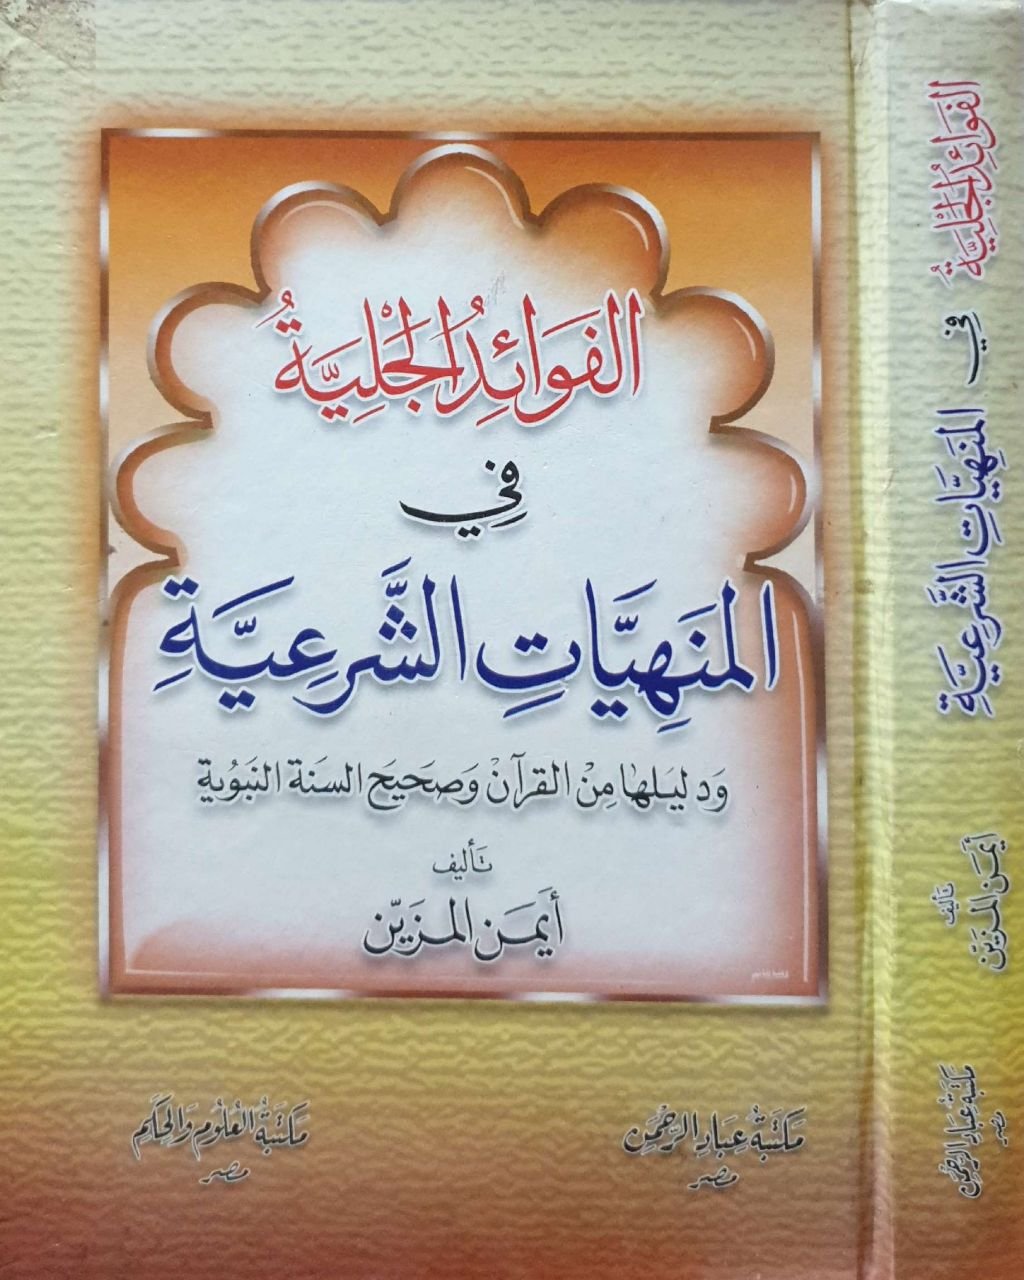 الفَوَائِدُ الجَلِيَّةُ
فِي
المَنهِيَّاتِ الشَّرعِيَّةِ
وَدليَلها مِنْ القرآنْ وَصحَيحَ السنَة النبَوُية
تَأليف
أَيمَن المزيّن
مَكتَبةُ عِبَادِ الرَّحْمَن
مصر
مَكتَبَةُ العُلُومِ وَالحِكَمِ
مصر
الفَوَائِدُ الجَلِيَّةُ فِي المَنهِيَّاتِ الشَّرعِيَّةِ
تَأليف
أَيمَن المزيّن
مَكتَبةُ عِبَادِ الرَّحْمَن
مصر